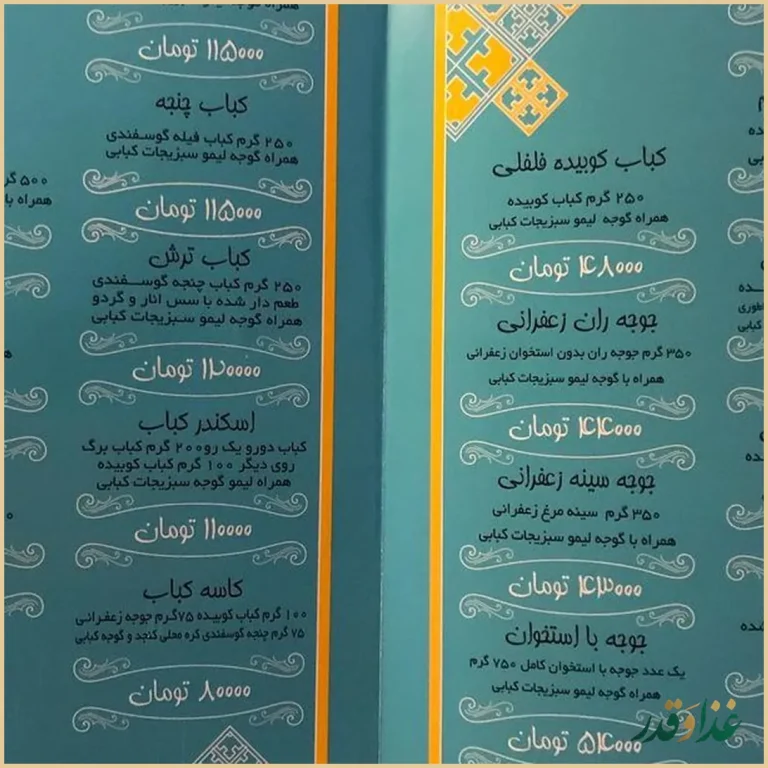 کباب کوبیده فلفلی
۲۵۰ گرم کباب کوبیده
همراه گوجه لیمو سبزیجات کبابی
۴۸۰۰۰ تومان
جوجه ران زعفرانی
۳۵۰ گرم جوجه ران بدون استخوان زعفرانی
همراه با گوجه لیمو سبزیجات کبابی
۴۴۰۰۰ تومان
جوجه سینه زعفرانی
۳۵۰ گرم سینه مرغ زعفرانی
همراه با گوجه لیمو سبزیجات کبابی
۴۳۰۰۰ تومان
جوجه با استخوان
یک عدد جوجه با استخوان کامل ۷۵۰ گرم
همراه گوجه لیمو سبزیجات کبابی
۵۴۰۰۰ تومان
همراه گوجه لیمو سبزیجات کبابی
۱۱۵۰۰۰ تومان
کباب چنجه
۲۵۰ گرم کباب فیله گوسفندی
همراه گوجه لیمو سبزیجات کبابی
۱۱۵۰۰۰ تومان
کباب ترش
۲۵۰ گرم کباب چنجه گوسفندی
طعم دار شده با سس انار و گردو
همراه گوجه لیمو سبزیجات کبابی
۱۲۰۰۰۰ تومان
اسکندر کباب
کباب دورو یک رو۲۰۰ گرم کباب برگ
روی دیگر ۱۰۰ گرم کباب کوبیده
همراه لیمو گوجه سبزیجات کبابی
۱۱۰۰۰۰ تومان
کاسه کباب
۱۰۰ گرم کباب کوبیده ۷۵گرم جوجه زعفرانی
۷۵ گرم چنجه گوسفندی کره محلی کنجد و گوجه کبابی
۸۰۰۰۰ تومان
۵۰۰ گر
همراه با
غذا و قدر